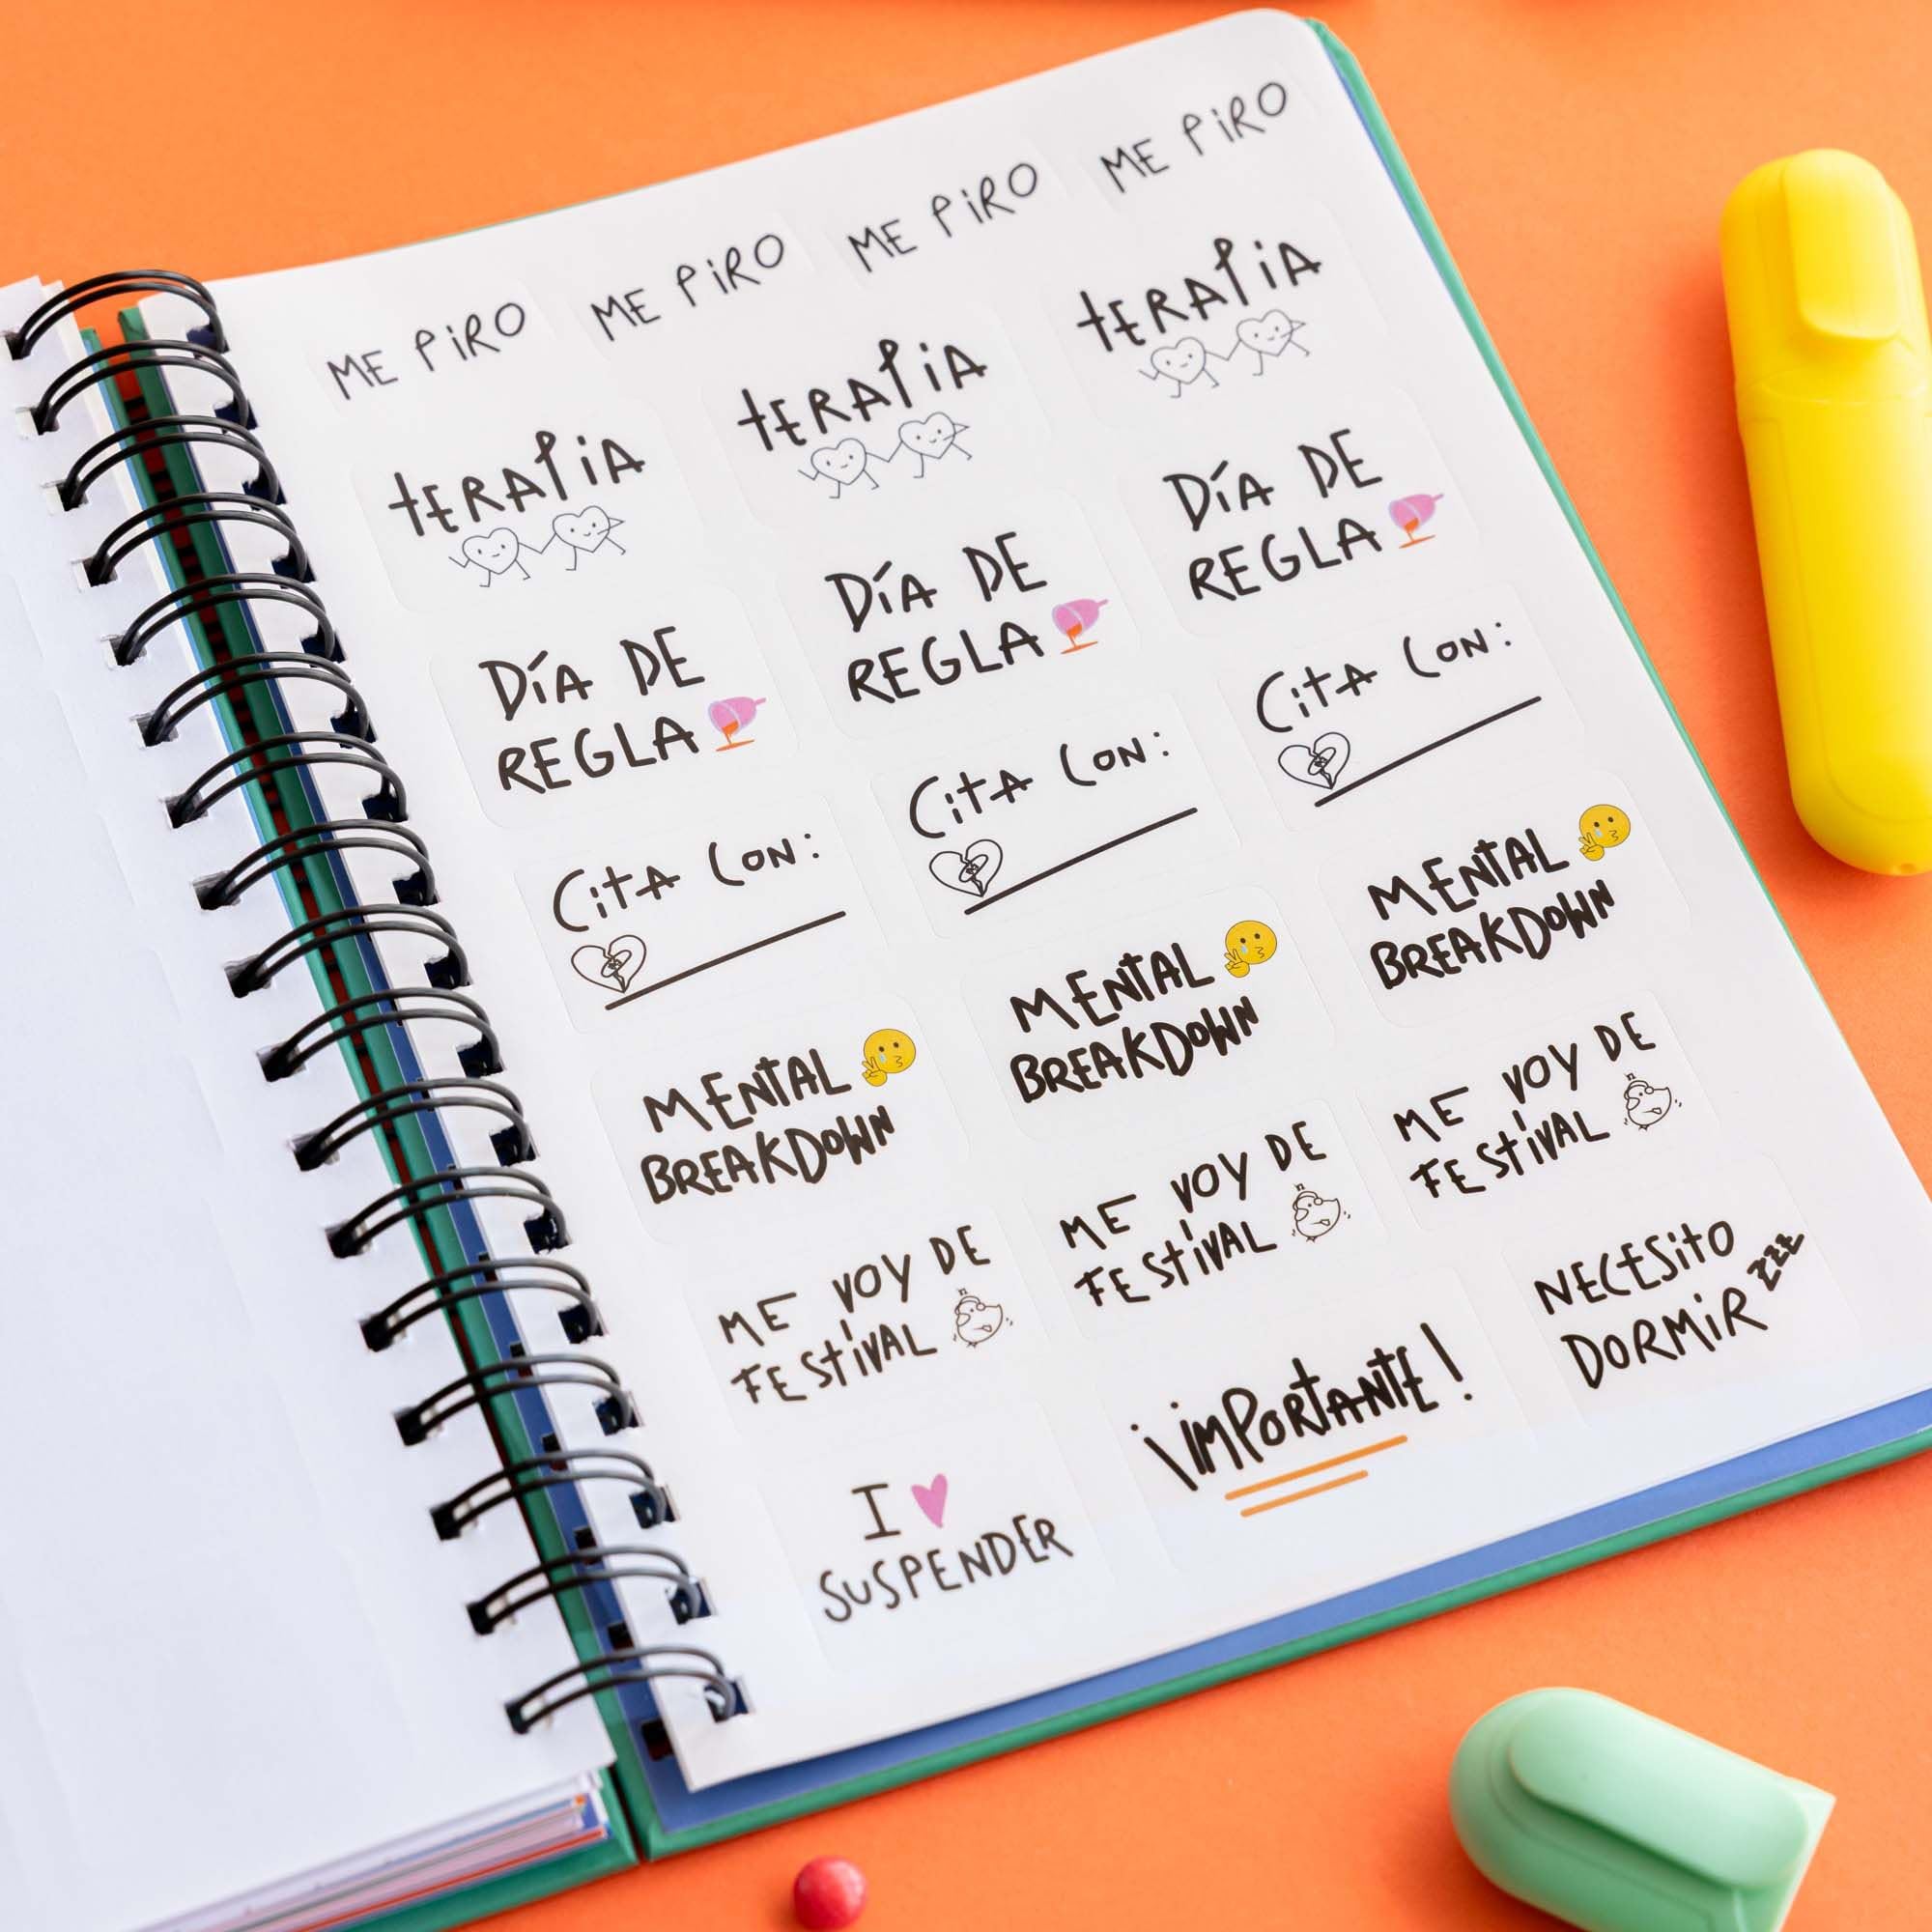 ME PiRO ME PiRO ME PiRO ME PiRO
tERAPiA tERAPiA tERAPiA
DíA DE
REGLA
DíA DE
REGLA
DíA DE
REGLA
CitA CON:
CitA CON:
CitA CON:
MENTAL
BREAKDOWN
MENTAL
BREAKDOWN
MENTAL
BREAKDOWN
ME VOY DE
FEStiVAL
ME VOY DE
FEStiVAL
ME VOY DE
FEStiVAL
I ♥
SUSPENDER
¡iMPORTANTE!
NECESitO
DORMiR zzz